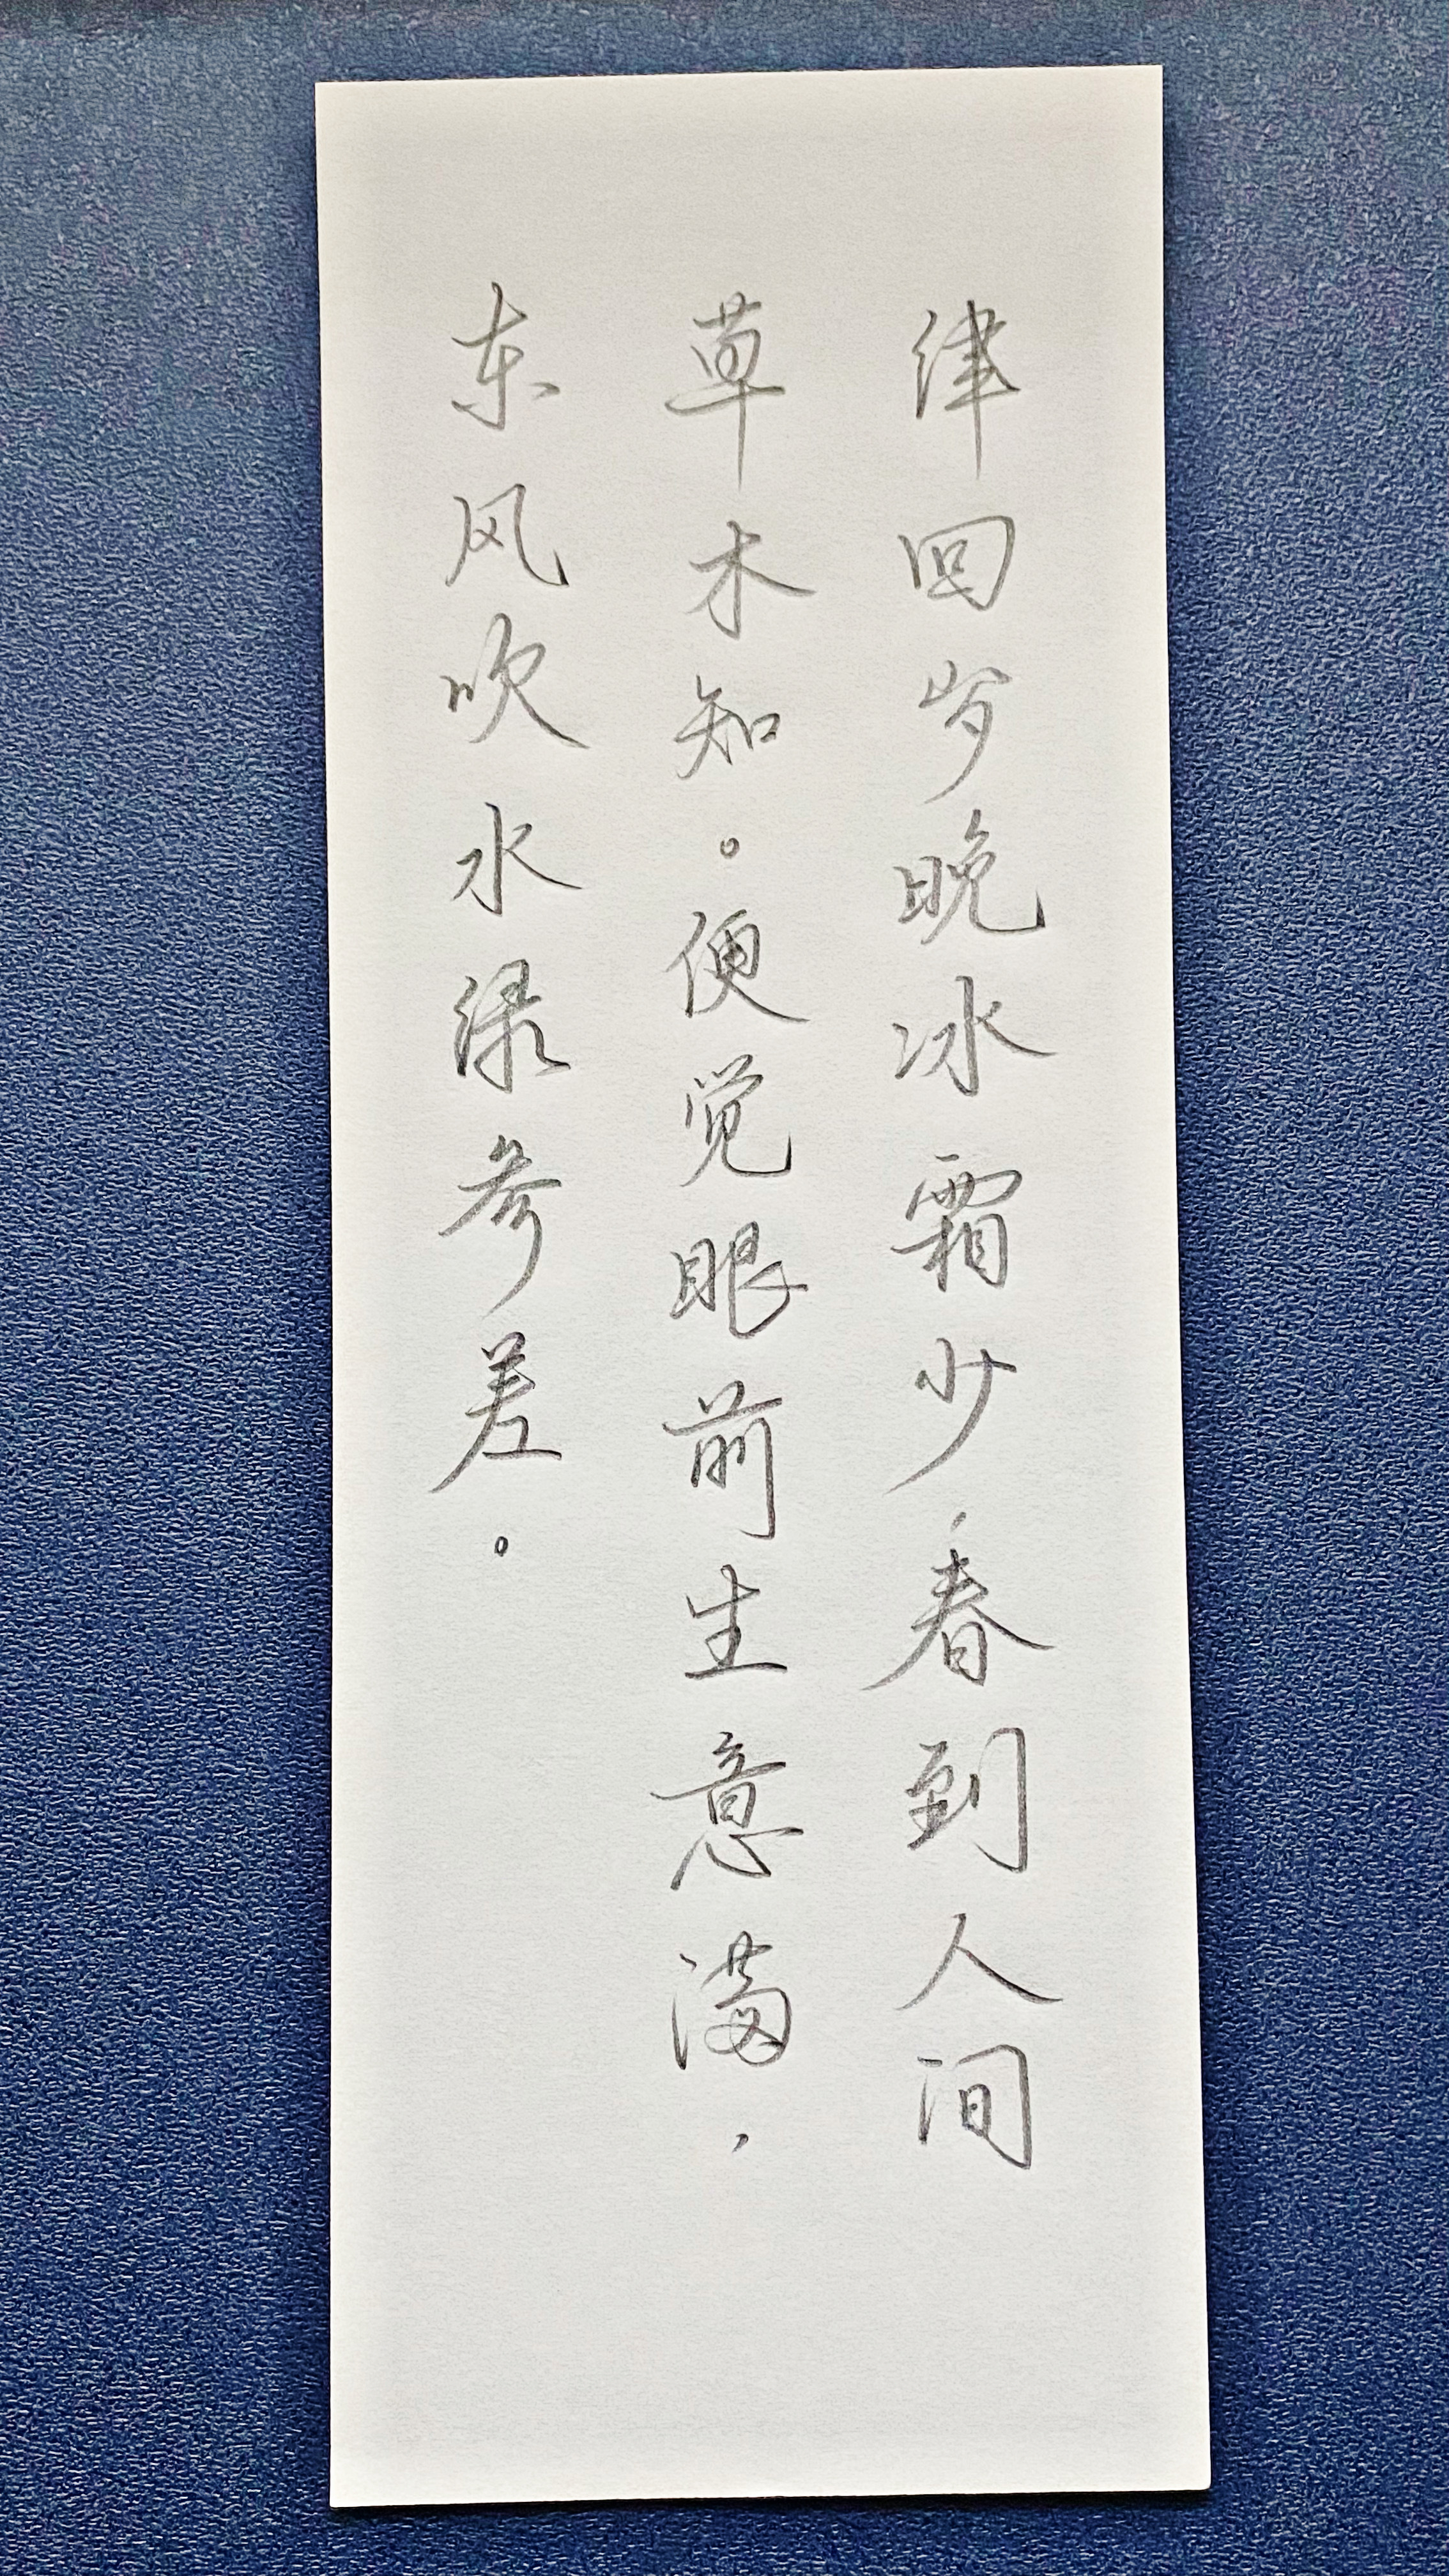 律回岁晚冰霜少，春到人间
草木知。便觉眼前生意满，
东风吹水绿参差。